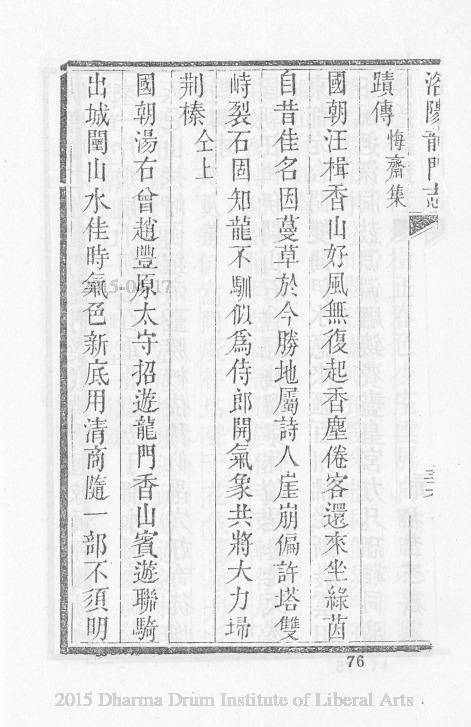 洛陽龍門志
蹟傳 悔齋集
國朝汪楫香山好風無復起香塵倦客還來坐綠茵
自昔佳名因蔓草於今勝地屬詩人崖崩偏許塔雙
峙裂石固知龍不馴似為侍郎開氣象共將大力埽
荆榛 仝上
國朝湯右曾趙豐原太守招遊龍門香山賓遊聯騎
出城闉山水佳時氣色新底用清商隨一部不須明
76
2015 Dharma Drum Institute of Liberal Arts